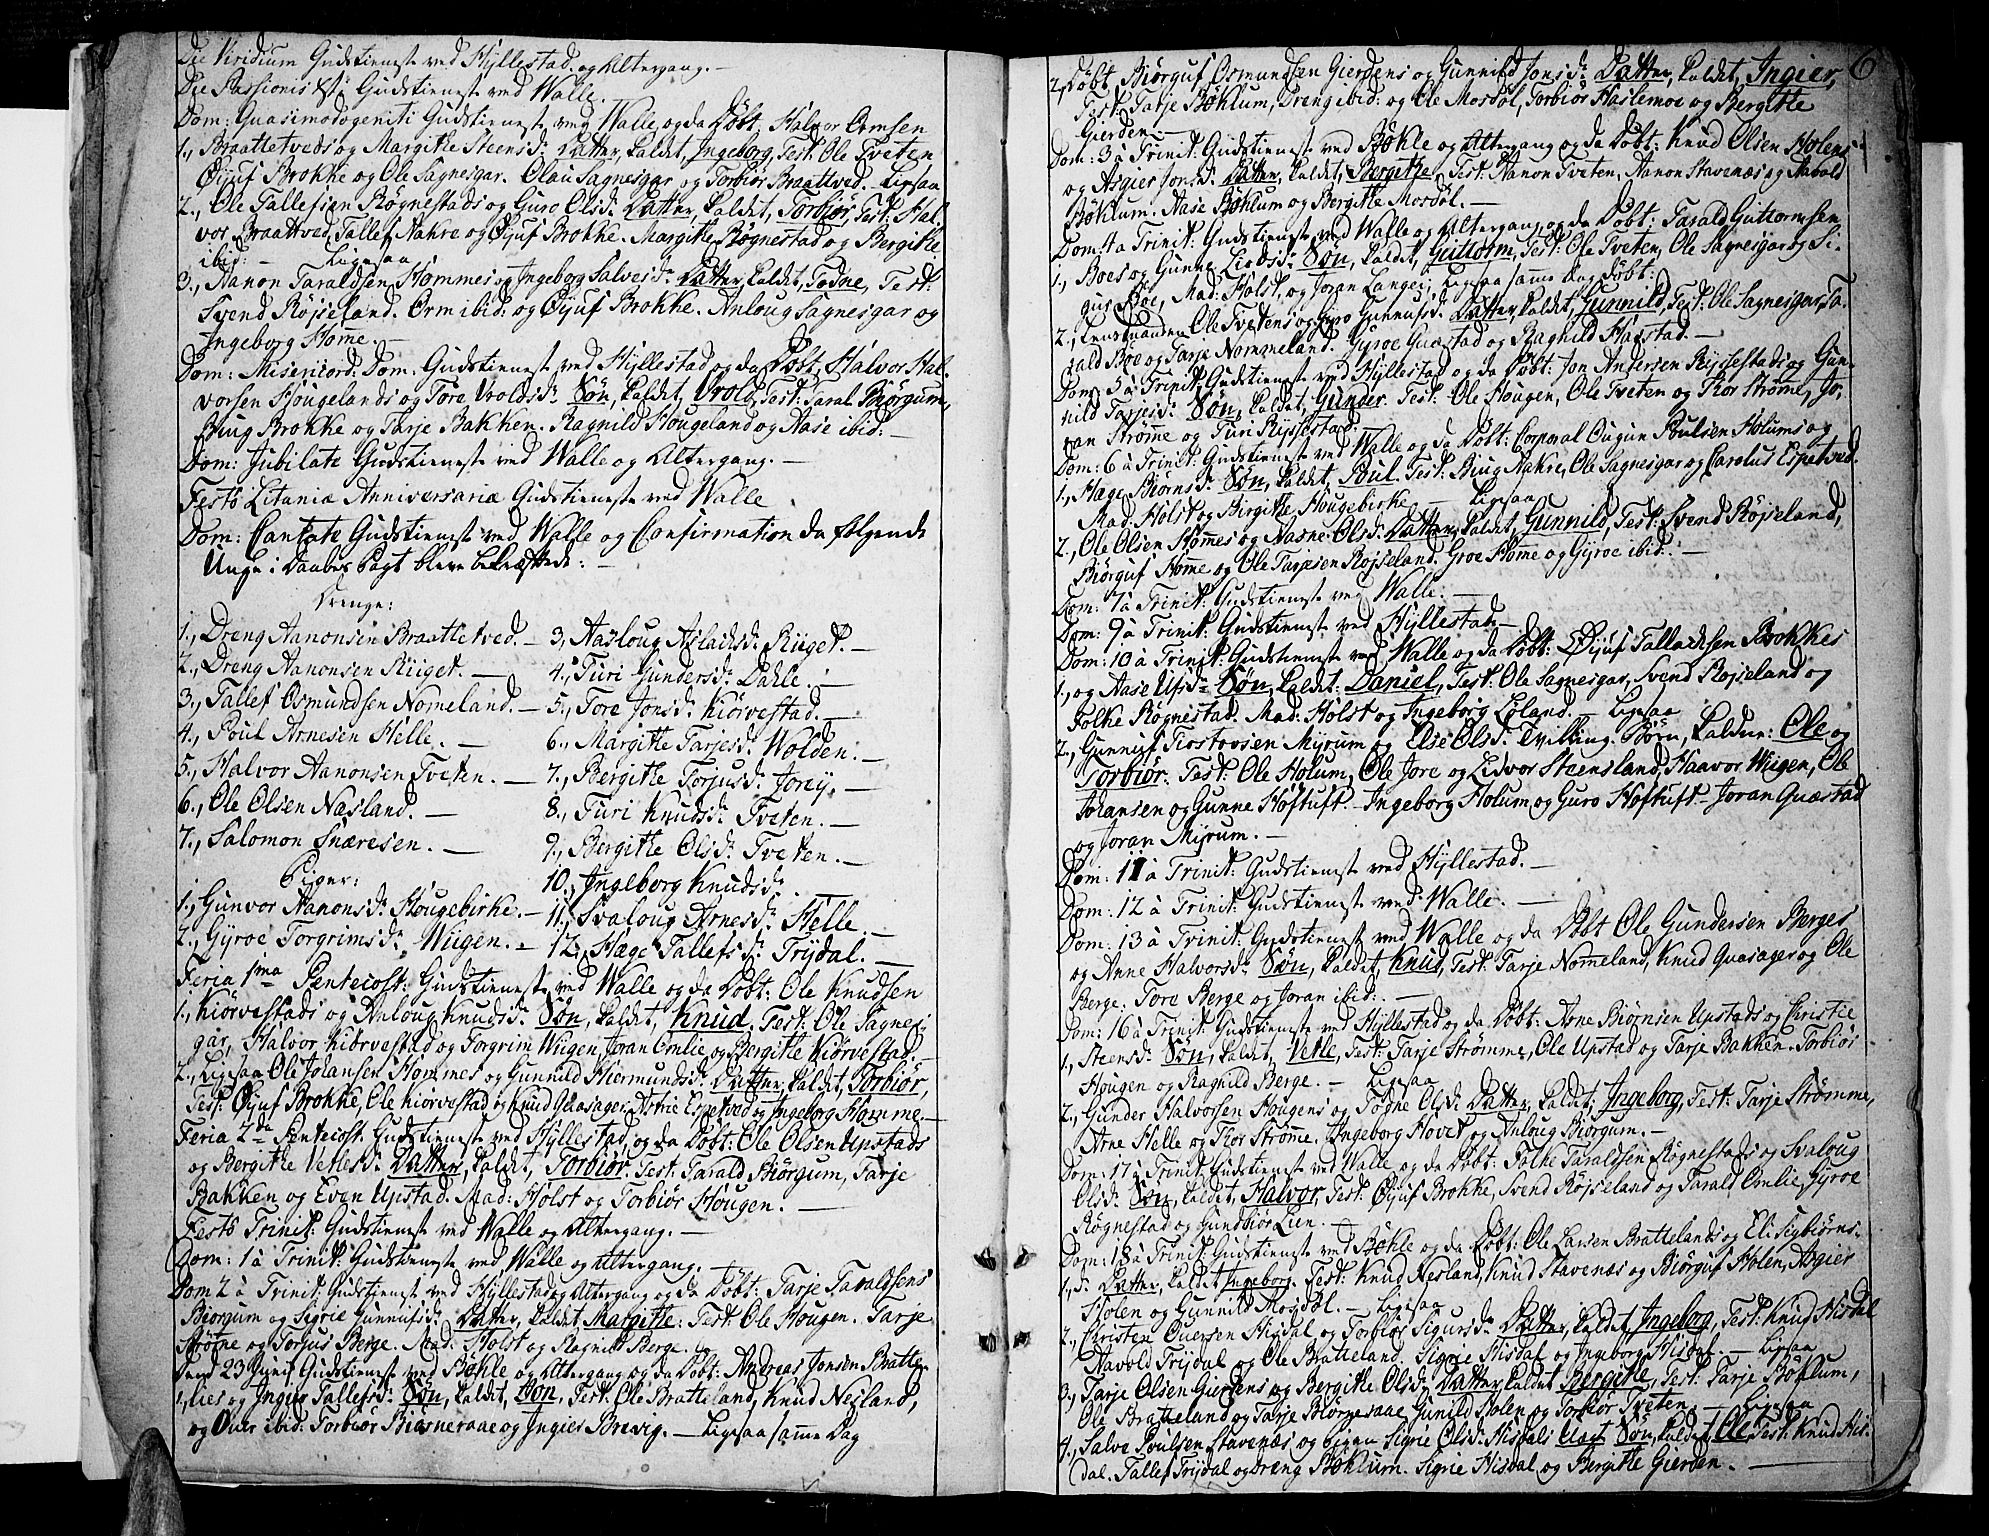 Die Viridium Gudstieneste ved Hyllestad og Altergang. —
Die Passionis Xsti Gudstieneste ved Walle. —
Dom: Quasimodogeniti Gudstieneste ved Walle, og da Döbt, Halvor Ormsen
1., Braattetveds og Margithe Steensd: Datter, kaldet, Ingeborg, Test: Ole Tveten
Öijuf Brokke og Ole Sagnesgar. Olau Sagnesgar og Torbiör Braattved. Ligesaa
2., Ole Tallefsen Rögnestads og Guro Olsd: Datter, kaldet, Torbiör, Test: Hal-
vor Braattved, Tallef Nakre og Öijuf Brokke. Margithe Rögnestad og Bergithe
ibid: — Ligesaa
3., Aanon Taraldsen Hommes og Ingeborg Salvesd: Datter, kaldet, Todne, Test:
Svend Röjseland. Orm ibid: og Öijuf Brokke. Anloug Sagnesgar og
Ingeborg Home. —
Dom: Misericord: Dom: Gudstieneste ved Hyllestad og da Döbt, Halvor Hal-
vorsen Hougelands og Tore Uroldsd: Sön, kaldet, Urold, Test: Taral Biörgum,
Biug Brokke og Tarje Bakken. Ragnild Hougeland og Aase ibid: —
Dom: Jubilate Gudstieneste ved Walle og Altergang. —
Festo Litaniæ Anniversariæ Gudstieneste ved Walle
Dom: Cantate Gudstieneste ved Walle og Confirmation da følgende
Unge i Daabes Pagt bleve bekræftede: —
Drenge:
1., Dreng Aanonsen Braattetved. —
2., Dreng Aanonsen Riiget. —
3., Tallef Osmundsen Nomeland. —
4., Poul Arnesen Helle. —
5., Halvor Aanonsen Tveten. —
6., Ole Olsen Nasland. —
7., Salomon Snaresen. —
Piger:
1., Gunvor Aanonsd: Hougebirke. —
2., Gyroe Torgrimsd: Wiigen. —
3., Aasloug Aslachsd: Riiget. —
4., Turi Gundersd: Dahle. —
5., Tore Jonsd: Kiörvestad. —
6., Margithe Tarjesd: Wolden. —
7., Bergithe Torjusd: Jorej. —
8., Turi Knudsd: Tveten. —
9., Bergithe Olsd: Tveten. —
10., Ingeborg Knudsd:
11., Svaloug Arnesd: Helle. —
12., Hæge Tallefsd: Trijdal. —
Feria 1ma Pentecost: Gudstieneste ved Walle og da Döbt: Ole Knudsen
1., Kiörvestads og Anloug Knudsd: Sön, kaldet, Knud. Test: Ole Sagnes-
gar, Halvor Kiörvestad og Torgrim Wiigen, Joran Omlie, og Bergithe Kiörvestad. —
2., Ligesaa Ole Johansen Hommes og Gunnild Hiermundsd: Datter, kaldet, Torbiör,
Test: Öijuf Brokke, Ole Kiörvestad og Knud Quasager, Astrie Espetved og Ingeborg Homme. —
Feria 2da Pentecost: Gudstieneste ved Hyllestad, og da Döbt: Ole Olsen Upstads
og Bergithe Vetlesd: Datter, kaldet, Torbiör. Test: Tarald Biörgum, Tarje
Bakken og Even Upstad. Mad: Holst og Torbiör Hougen. —
Festo Trinit: Gudstieneste ved Walle og Altergang. —
Dom: 1 à Trinit: Gudstieneste ved Walle og Altergang. —
Dom 2 à Trinit: Gudstieneste ved Hyllestad og Altergang og da Döbt: Tarje Taraldsens
Biörgum og Sigrie Gunnufsd: Datter, kaldet, Margithe: Test: Ole Hougen. Tarje
Ströme og Torjus Berge. Mad: Holst og Ragnild Berge. —
Dend 23 Junii Gudstieneste ved Bökle og Altergang og da Döbt: Andreas Jonsen Bratte-
1., lies og Ingier Tallefsd: Sön, kaldet, Jon, Test: Ole Bratteland, Knud Nesland,
og Ouer ibid: Torbiör Biörneraae og Ingier Brevig. — Ligesaa same Dag
6
2., Döbt, Biörguf Osmundsen Gierdens og Gunnild Jonsd: Datter, kaldet, Ingier,
Test: Tarje Böklum, Dreng ibid: og Ole Mosdöl, Torbiör Haslemoe og Bergithe
Gierden. —
Dom: 3 à Trinit: Gudstieneste ved Bökle og Altergang og da Döbt: Knud Olsen Holens
og Asgier Jonsd: Datter, kaldet, Bergithe, Test: Aanon Tveten, Aanon Stavenæs og Aavold
Böklum. Aase Böklum og Bergithe Mosdöl. —
Dom: 4 a Trinit: Gudstieneste ved Walle og Altergang og da Döbt: Tarald Guttormsen
1., Boes og Gunne Lidvsd: Sön, kaldet, Guttorm, Test: Ole Tveten, Ole Sagnesgar og Si-
gus Boe, Mad: Holst, og Joran Langei; Ligesaa samme Dag Döbt:
2., Ole Tvetens og Guro Gunnufsd: Datter, kaldet, Gunnild, Test: Ole Sagnesgar, Ta-
rald Boe og Tarje Nommeland. Gyroe Quæstad og Ragnild Harstad. —
Dom: 5 à Trinit: Gudstieneste ved Hyllestad og da Döbt: Jon Andersen Rijssestads og Gun-
nild Tarjesd: Sön, kaldet, Gunder. Test: Ole Hougen, Ole Tveten og Thor Ströme, Jo-
ran Strömme og Turi Rijssestad. —
Dom: 6 à Trinit: Gudstieneste ved Walle og da Döbt: Corporal Ougun Poulsen Holums og
1., Hæge Biörnsd: Sön, kaldet, Poul. Test: Biug Nakre, Ole Sagnesgar og Carolus Espetved.
Mad: Holst og Birgithe Hougebirke — Ligesaa
2., Ole Olsen Hommes og Aasne Olsd: Datter, kaldet, Gunnild, Test: Svend Röjseland,
Biörguf Home og Ole Tarjesen Röjseland. Groe Home og Gyroe ibid: —
Dom: 7 à Trinit: Gudstieneste ved Walle. —
Dom: 9 à Trinit: Gudstieneste ved Hyllestad. —
Dom: 10 à Trinit: Gudstieneste ved Walle og da Döbt: Öijuf Tallachsen Brokkes
1., og Aase Ufsd: Sön, kaldet: Daniel, Test: Ole Sagnesgar, Svend Röjseland og
Folke Rögnestad. Mad: Holst og Ingeborg Löland. — Ligesaa
2., Gunnuf Tiostovsen Myrum og Else Olsd: Tvilling-Börn, kaldne: Ole og
Torbiör: Test: Ole Holum, Ole Jore og Lidvor Steensland, Haavor Wiigen, Ole
Johansen og Gunne Hoftuft. Ingeborg Holum og Guro Hoftuft. Joran Quæstad
og Joran Myrum. —
Dom: 11 à Trinit: Gudstieneste ved Hyllestad. —
Dom: 12 à Trinit: Gudstieneste ved Walle. —
Dom: 13 à Trinit: Gudstieneste ved Walle og da Döbt Ole Gundersen Berges
og Anne Halvorsd: Sön, kaldet, Knud, Test: Tarje Nomeland, Knud Quasager og Ole
Berge. Tore Berge og Joran ibid: —
Dom: 16 à Trinit: Gudstieneste ved Hyllestad og da Döbt: Arne Biörnsen Upstads og Christie
1., Steensd: Sön, kaldet, Vetle, Test: Tarje Strömme, Ole Upstad og Tarje Bakken. Torbiör
Hougen og Ragnild Berge. — Ligesaa
2., Gunder Halvorsen Hougens og Togne Olsd: Datter, kaldet, Ingeborg, Test: Tarje Strömme,
Arne Helle og Thor Ströme. Ingeborg Hovet og Anloug Biörgum. —
Dom: 17 à Trinit: Gudstieneste ved Walle og da Döbt: Folke Taraldsen Rögnestads og Svaloug
Olsd: Sön, kaldet, Halvor, Test: Öijuf Brokke, Svend Röjseland og Tarald Omlie, Gyroe
Rögnestad og Gundbiör Lien. —
Dom: 18 à Trinit: Gudstieneste ved Bökle og da Döbt: Ole Larsen Brattelands og Eli Sigbiörns-
1., d: Datter, kaldet Ingeborg. Test: Knud Nesland, Knud Stavenæs og Biörguf Holen, Asgier
Holen og Gunnild Mosdöl. — Ligesaa
2., Christen Ouersen Hisdal og Torbiör Sigursd: Datter, kaldet, Ingeborg, Test: Knud Hisdal
Aavold Trijdal og Ole Bratteland. Sigrie Hisdal og Ingeborg Hisdal. — Ligesaa
3., Tarje Olsen Gierdens og Bergithe Olsd: Datter, kaldet Bergithe, Test: Tarje Böklum,
Ole Bratteland og Tarje Biörneraae Gunild Holen og Torbiör Tveten. — Ligesaa
4., Salve Poulsen Stavenæs og Sigrie Olsd: Hisdals Uægt Sön, kaldet, Ole, Test: Knud His-
dal. Tallef Trijdal og Dreng Böklum. Sigrie Hisdal og Bergithe Gierden. —